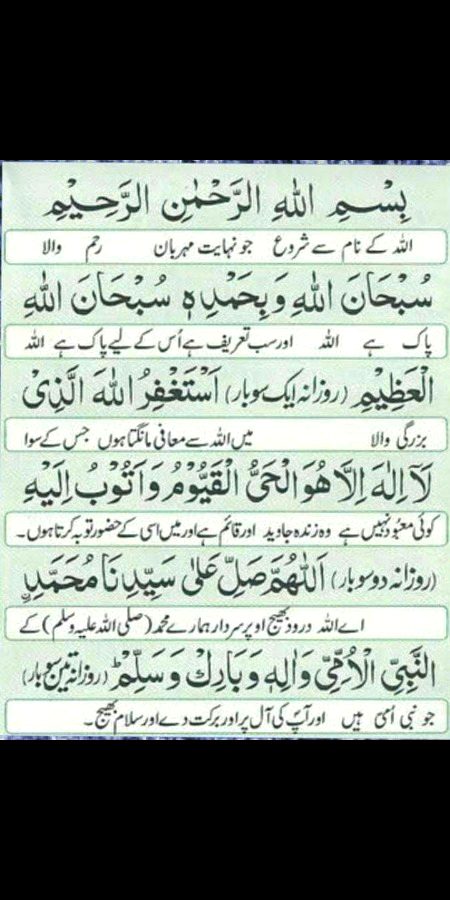 بِسْمِ اللهِ الرَّحْمٰنِ الرَّحِيْمِ
اللہ کے نام سے شروع جو نہایت مہربان رحم والا
سُبْحَانَ اللهِ وَبِحَمْدِهٖ سُبْحَانَ اللهِ
پاک ہے اللہ اور سب تعریف ہے اُس کے لیے پاک ہے اللہ
الْعَظِيْمِ (روزانہ ایک سو بار) اَسْتَغْفِرُ اللهَ الَّذِىْ
بزرگی والا میں اللہ سے معافی مانگتا ہوں جس کے سوا
لَآ اِلٰهَ اِلَّا هُوَ الْحَىُّ الْقَيُّوْمُ وَاَتُوْبُ اِلَيْهِ
کوئی معبود نہیں ہے وہ زندہ جاوید اور قائم ہے اور میں اسی کے حضور توبہ کرتا ہوں۔
(روزانہ دو سو بار) اَللّٰهُمَّ صَلِّ عَلٰى سَيِّدِنَا مُحَمَّدِ ۨ
اے اللہ درود بھیج اوپر سردار ہمارے محمد (صلی اللہ علیہ وسلم) کے
النَّبِىِّ الْاُمِّىِّ وَاٰلِهٖ وَبَارِكْ وَسَلِّمْ ؕ (روزانہ تین سو بار)
جو نبی اُمّی ہیں اور آپؐ کی آل پر اور برکت دے اور سلام بھیج۔